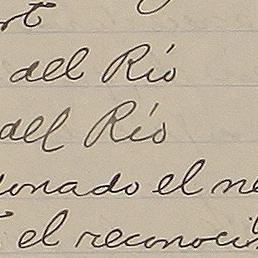 rt
del Río
del Río
onado el ne
el reconoci